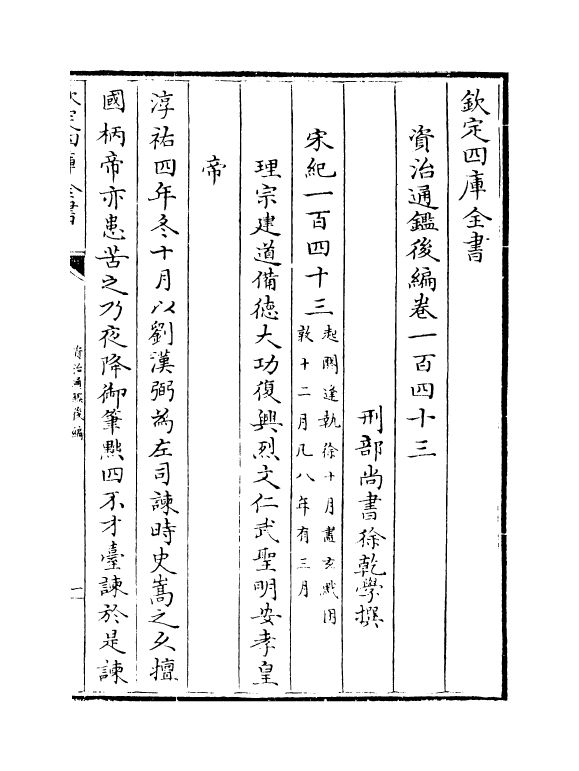 欽定四庫全書
資治通鑑後編卷一百四十三
刑部尚書徐乾學撰
宋紀一百四十三
起閼逢執徐十月盡玄黓困
敦十二月凡八年有三月
理宗建道備德大功復興烈文仁武聖明安孝皇
帝
淳祐四年冬十月以劉漢弼為左司諫時史嵩之久擅
國柄帝亦患苦之乃夜降御筆黜四不才臺諫於是諫
欽定四庫全書
資治通鑑後編
一